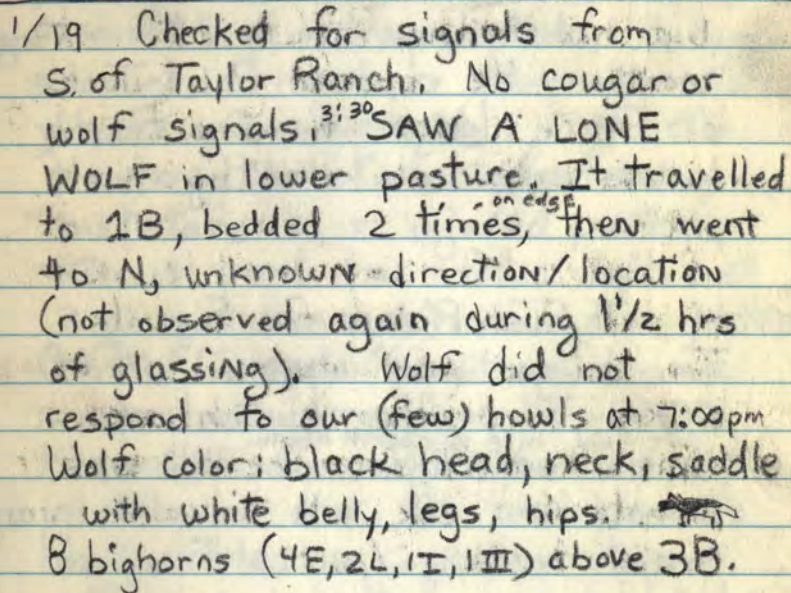 1/19 Checked for signals from
S. of Taylor Ranch. No cougar or
wolf signals. 3:30 SAW A LONE
WOLF in lower pasture. It travelled
to 1B, bedded 2 times, on edge, then went
to N, unknown direction/location
(not observed again during 1 1/2 hrs
of glassing). Wolf did not
respond to our (few) howls at 7:00pm
Wolf color: black head, neck, saddle
with white belly, legs, hips.
8 bighorns (4E, 2L, 1I, 1III) above 3B.